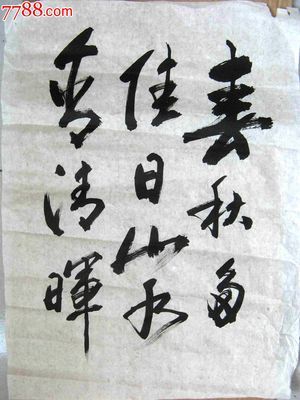 7788.com
春秋多
佳日山水
有清暉